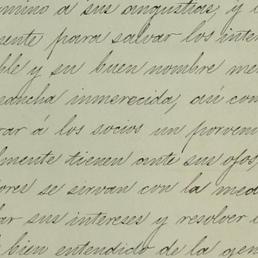 mino a sus angustias, y
mente para salvar los inter
ble y su buen nombre mer
mancha inmerecida, así com
rar á los socios un porveni
lmente tienen ante sus ojos,
ores se sirvan con la med
lar sus intereses y resolver
bien entendido de la gen